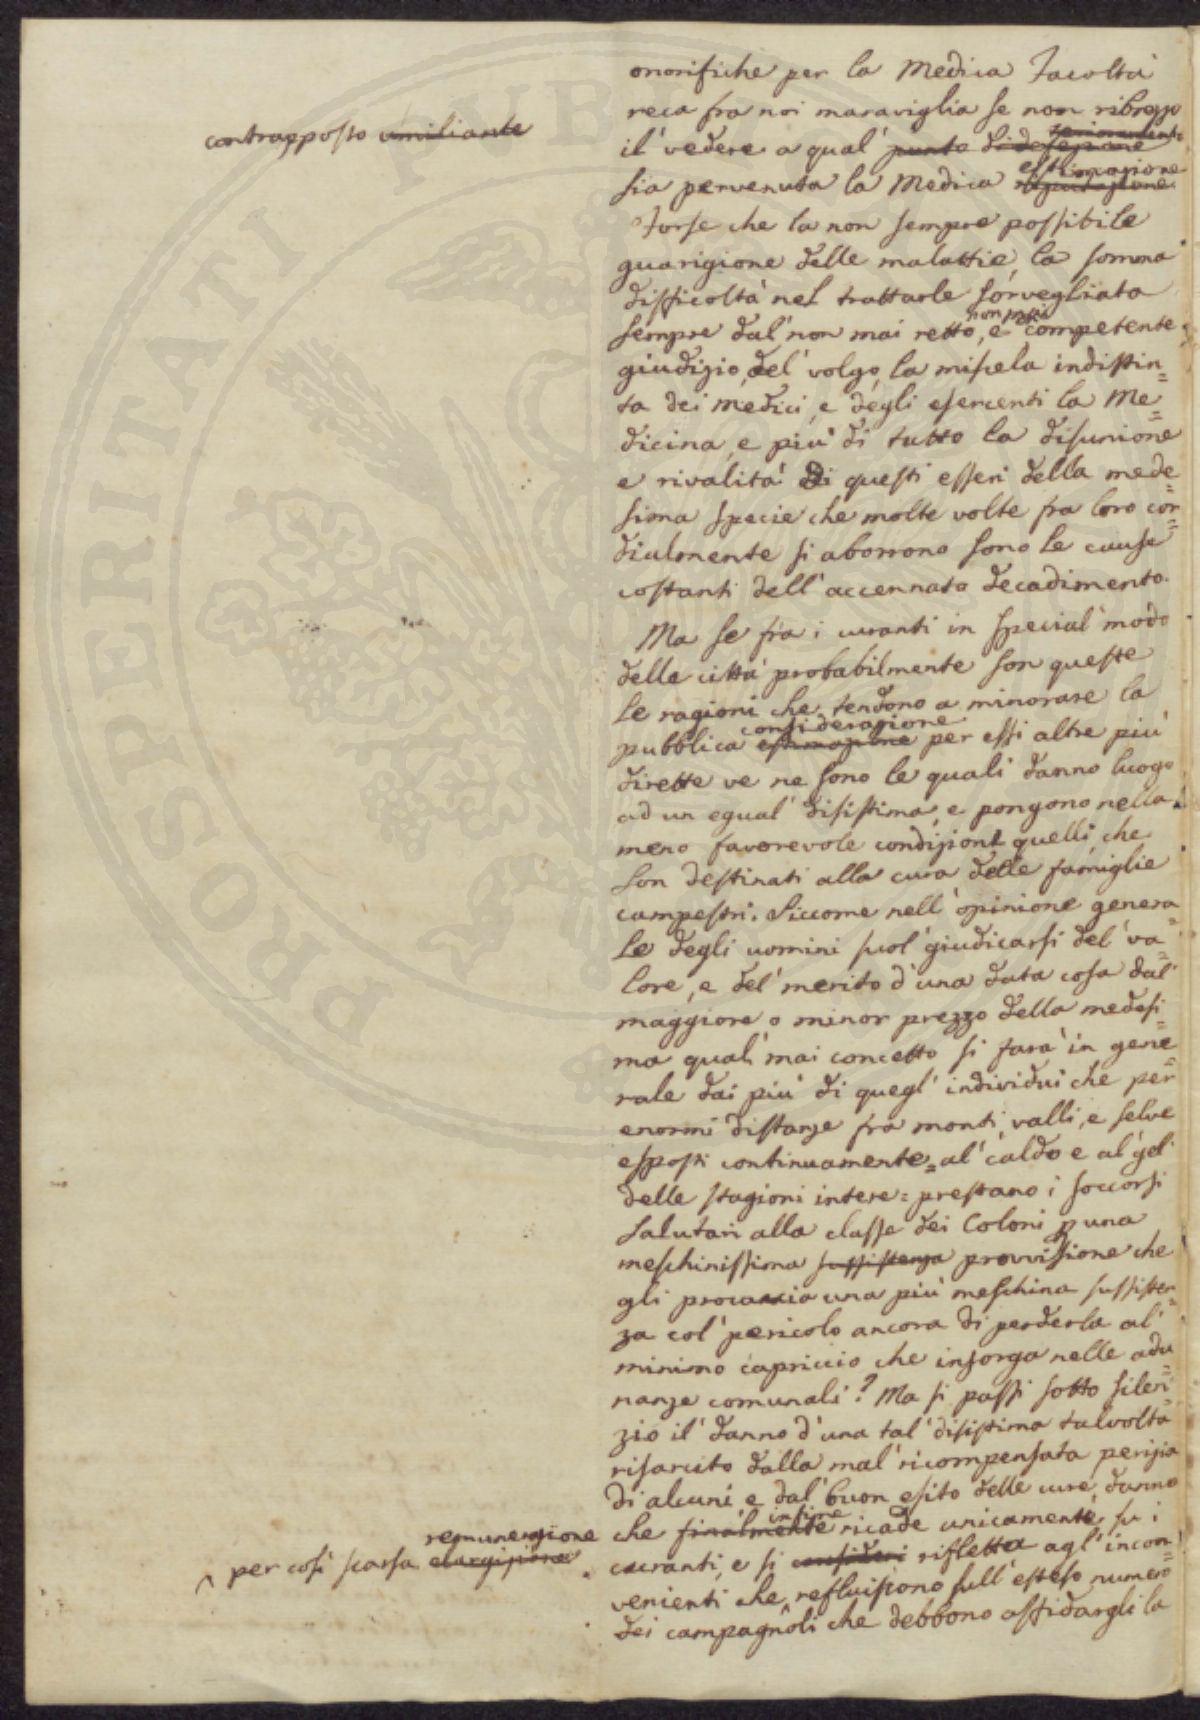 onorifiche per la Medica Facoltà
reca fra noi maraviglia se non ribrezzo
contrapposto umiliante
il vedere a qual' punto di
sia pervenuta la Medica estimazione reputazione.
Forse che la non sempre possibile
guarigione delle malattie, la somma
difficoltà nel trattarle sorvegliata
sempre dal' non mai retto, e non mai competente
giudizio del' volgo, la miscela indistin=
ta dei Medici, e degli esercenti la Me=
dicina, e più di tutto la disunione
e rivalità di questi esseri della mede=
sima specie che molte volte fra loro cor=
dialmente si aborrono sono le cause
costanti dell' accennato decadimento.
Ma se fra i curanti in special' modo
delle città probabilmente son queste
le ragioni che tendono a minorare la
pubblica considerazione estimazione per essi altre più
dirette ve ne sono le quali danno luogo
ad un egual' disistima, e pongono nella
meno favorevole condizione quelli che
son destinati alla cura delle famiglie
campestri. Siccome nell' opinione genera=
le degli uomini suol' giudicarsi del' va=
lore, e del' merito d'una data cosa dal'
maggiore o minor prezzo della medesi=
ma qual' mai concetto si farà in gene=
rale dai più di quegl' individui che per
enormi distanze fra monti, valli, e selve
esposti continuamente = al' caldo e al' gel'
delle stagioni intere = prestano i soccorsi
salutari alla classe dei Coloni p una
meschinissima sussistenza provvisione che
gli procaccia una più meschina sussisten=
za col' pericolo ancora di perderla al'
minimo capriccio che insorga nelle adu=
nanze comunali? Ma si passi sotto silen=
zio il' danno d'una tal' disistima talvolta
risarcito dalla mal' ricompensata perizia
di alcuni, e dal' buon esito delle cure, danno
che finalmente infine ricade unicamente su i
curanti, e si consideri rifletta agl' incon=
remunerazione
^ per così scarsa elargizione
venienti che ^ refluiscono sull' esteso numero
dei campagnoli che debbono affidargli la